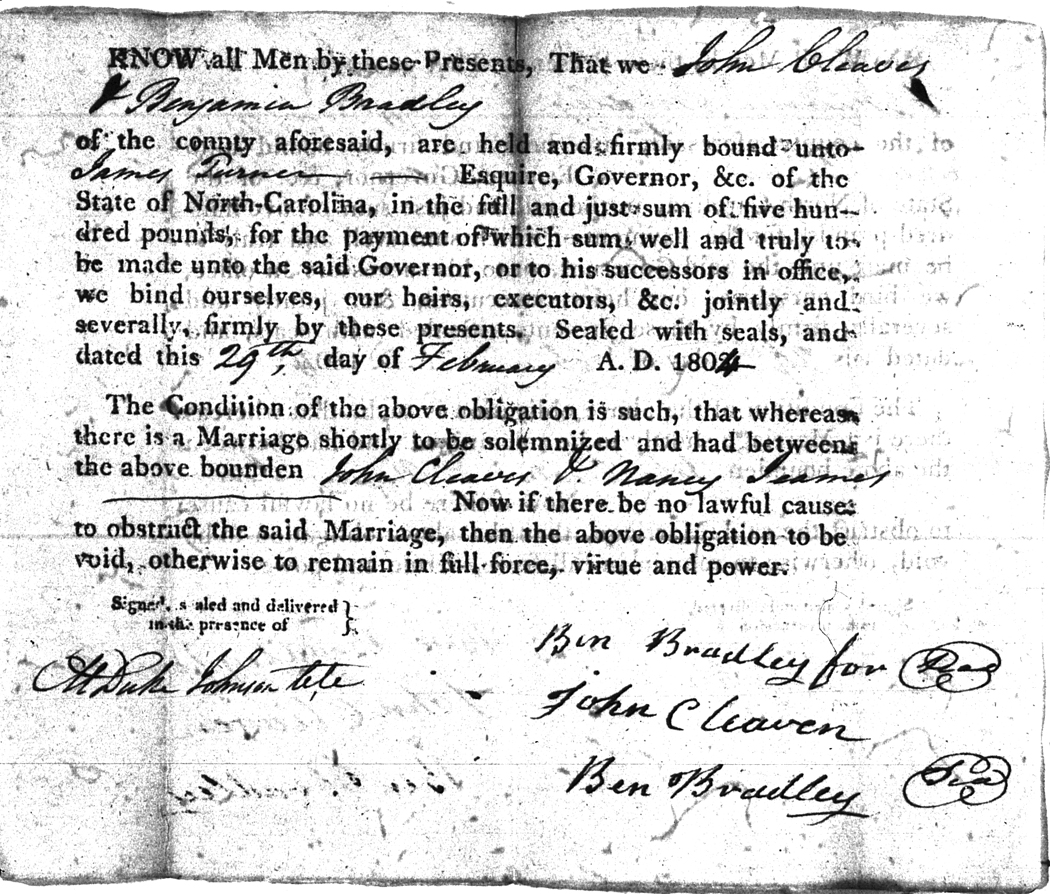 KNOW all Men by these Presents, That we John Cleaves
& Benjamin Bradley
of the county aforesaid, are held and firmly bound unto
James Turner Esquire, Governor, &c. of the
State of North-Carolina, in the full and just sum of five hun-
dred pounds, for the payment of which sum well and truly to
be made unto the said Governor, or to his successors in office,
we bind ourselves, our heirs, executors, &c. jointly and
severally, firmly by these presents. Sealed with seals, and
dated this 29th, day of February A. D. 1804
The Condition of the above obligation is such, that whereas
there is a Marriage shortly to be solemnized and had between
the above bounden John Cleaves & Nancy
Now if there be no lawful cause
to obstruct the said Marriage, then the above obligation to be
void, otherwise to remain in full force, virtue and power.
Signed, sealed and delivered }
in the presence of }
Ben Bradley for
Duke Johnson
John Cleaven
Ben Bradley